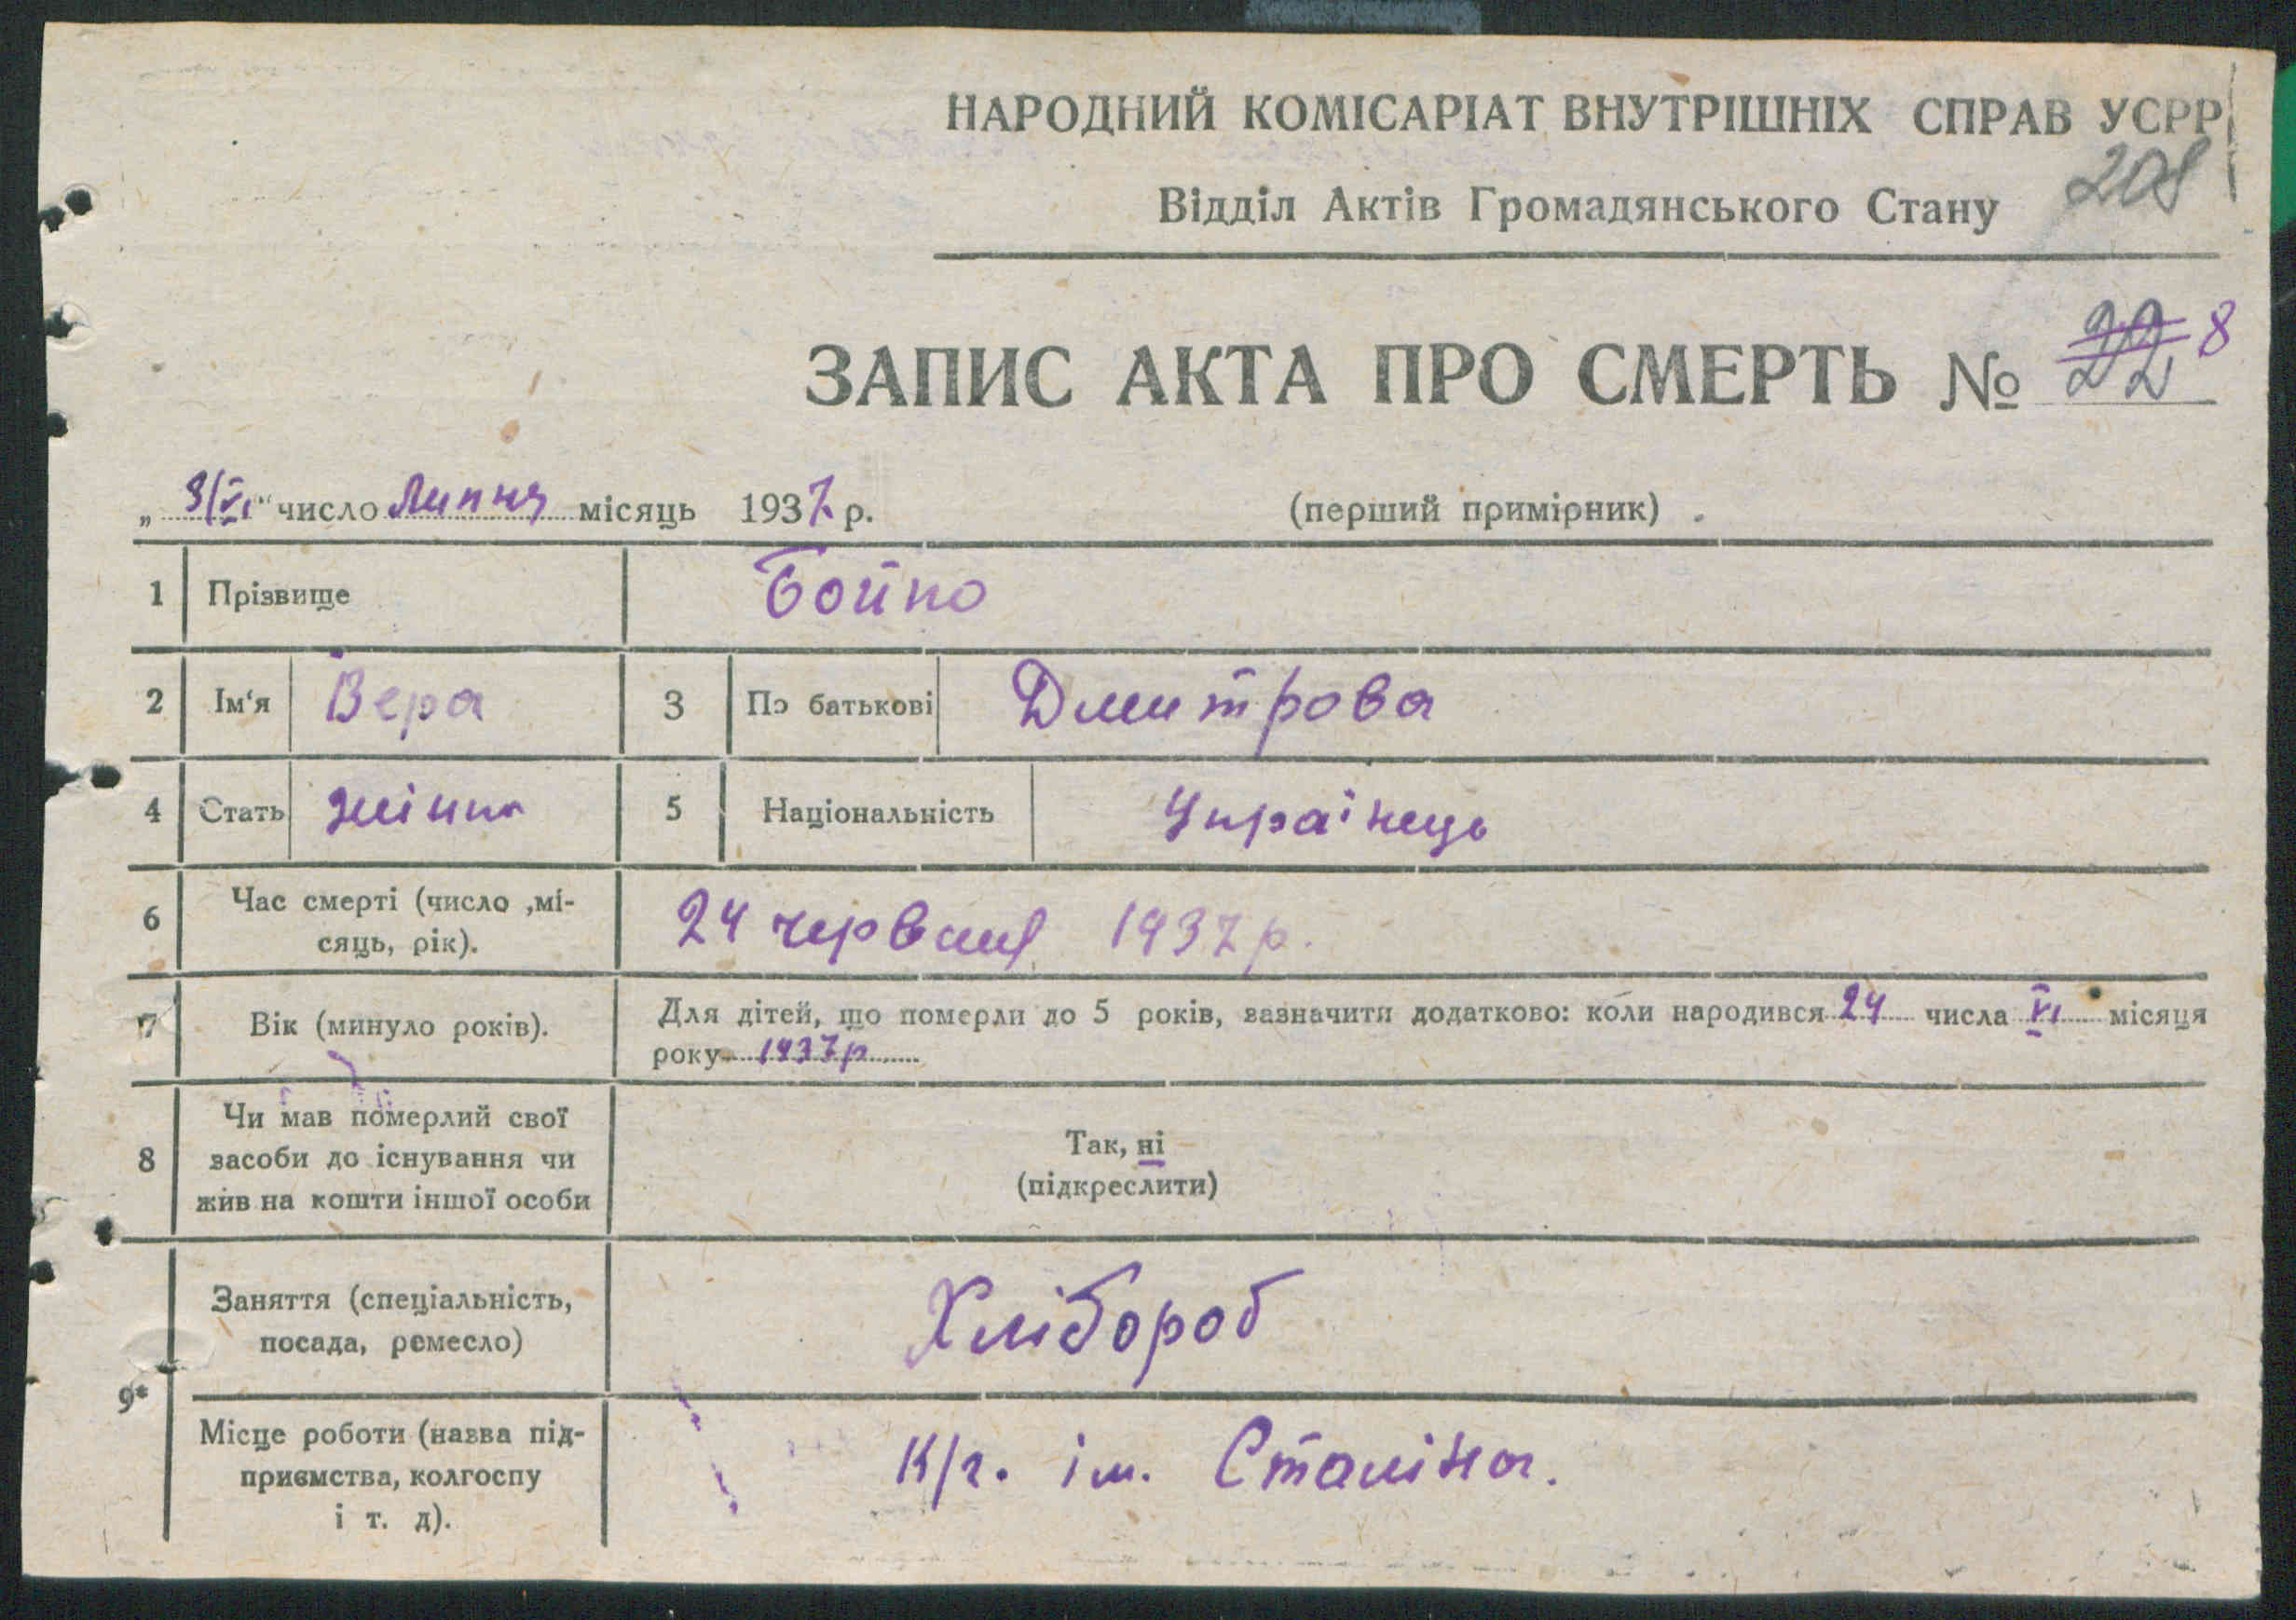 НАРОДНИЙ КОМІСАРІАТ ВНУТРІШНІХ СПРАВ УСРР
208
Відділ Актів Громадянського Стану
ЗАПИС АКТА ПРО СМЕРТЬ № 22 8
„3/VI“ число Липня місяць 1937 р. (перший примірник)
1 Прізвище Бойко
2 Ім‘я Вера 3 По батькові Дмитрова
4 Стать жінка 5 Національність Українець
6 Час смерті (число ,мі-
сяць, рік). 24 червня 1937 р.
7 Вік (минуло років). Для дітей, що померли до 5 років, зазначити додатково: коли народився 24 числа VI місяця
року 1937р
8 Чи мав померлий свої
засоби до існування чи
жив на кошти іншої особи
Так, ні
(підкреслити)
9*
Заняття (спеціальність,
посада, ремесло) Хлібороб
Місце роботи (назва під-
приємства, колгоспу
і т. д). К/г. ім. Сталіна.